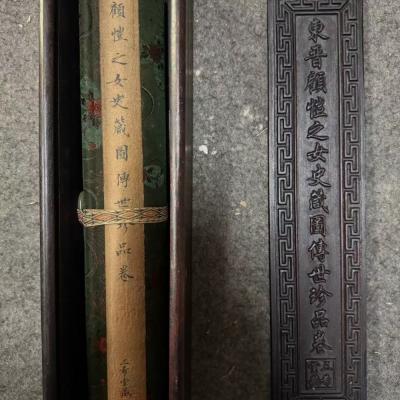 顧愷之女史箴圖傳世珍品卷
三希堂藏
東晉顧愷之女史箴圖傳世珍品卷